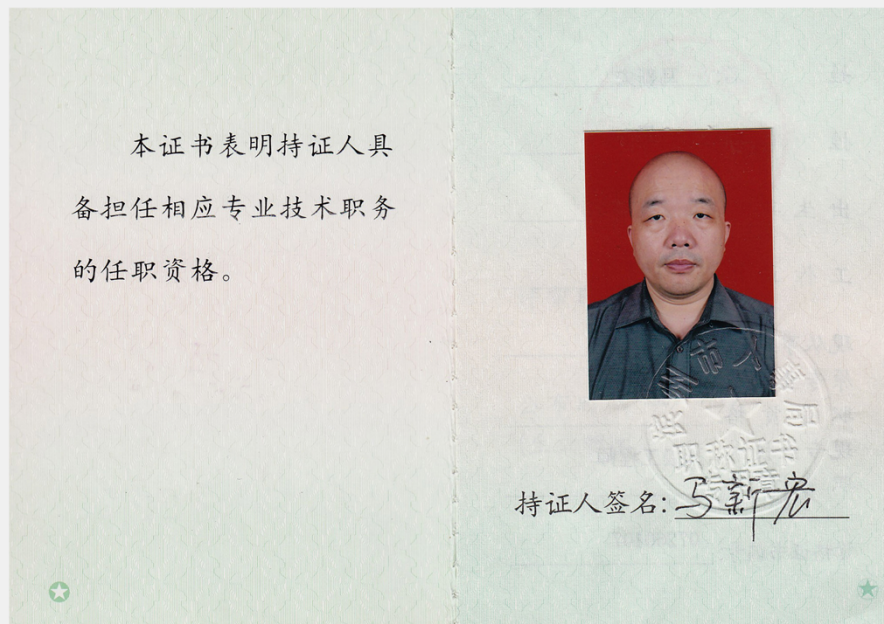 本证书表明持证人具
备担任相应专业技术职务
的任职资格。
职称证书
专用章
持证人签名：马新宏